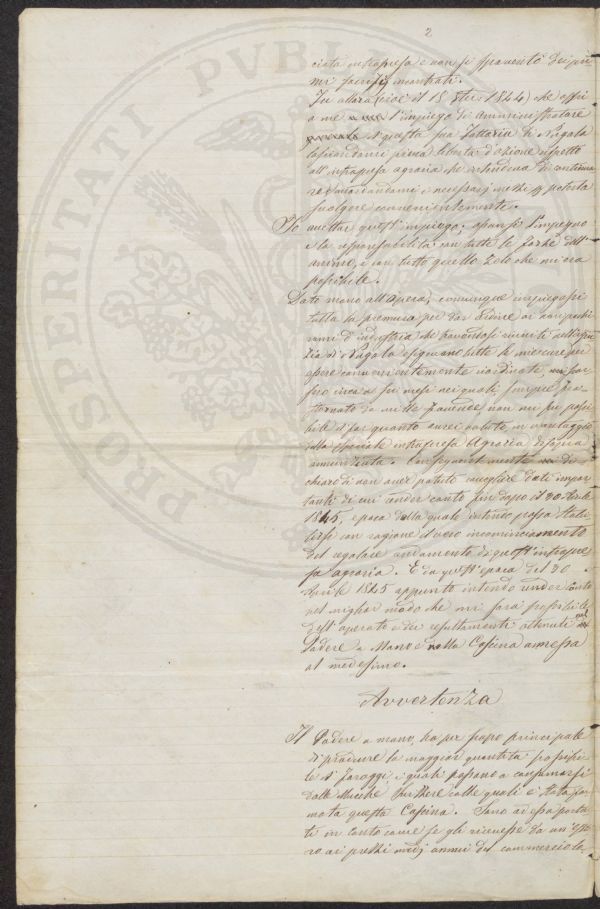 2
ciata intrapresa e non si spaventò dei primi sacrifizj incontrati.
Fu allora (cioè il 18 8bre 1844) che offrì
a me l'impiego di amministratore
di questa sua Fattoria di Nugola
lasciandomi piena libertà d'azione rispetto
all'intrapresa agraria che intendeva di continuare
accordandomi i necessarj mezzi p poterla
svolgere convenientemente.
Io accettai quest'impiego, assunsi l'impegno
e la responsabilità con tutte le forze dell'
animo, e con tutto quello zelo che mi era
possibile.
Dato mano all'opera, comunque impiegassi
tutta la premura per dar ordine ai
rami d'industria che trovansi riuniti nell'
di Nugola e fossero tutte le misure
convenientemente
circa a sei mesi nei quali,
da mille faccende, non mi fu possibile
di far quanto avrei voluto, in vantaggio
della speciale intrapresa Agraria di sopra
annunziata. Conseguentemente dichiaro
di non aver potuto raccogliere dati importanti
di cui render conto fino dopo il 30 Aprile
1845, epoca dalla quale intendo possa stabilirsi
con ragione il vero incominciamento
del regolare andamento di quest'intrapresa
agraria. E da quest'epoca del 30
Aprile 1845 appunto intendo render conto
nel miglior modo che mi sarà possibile
dell'operato e dei resultamenti ottenuti nel
Podere a Mano e nella Cascina annessa
al medesimo.
Avvertenza
Il Podere a mano, ha per scopo principale
di produrre la maggior quantità possibile
di foraggi i quali possano consumarsi
dalle Mucche Svizzere colle quali è stata formata
questa Cascina. Sono ad essa portati
in conto come se gli ricevesse da un
ai prezzi medj annui del commercio